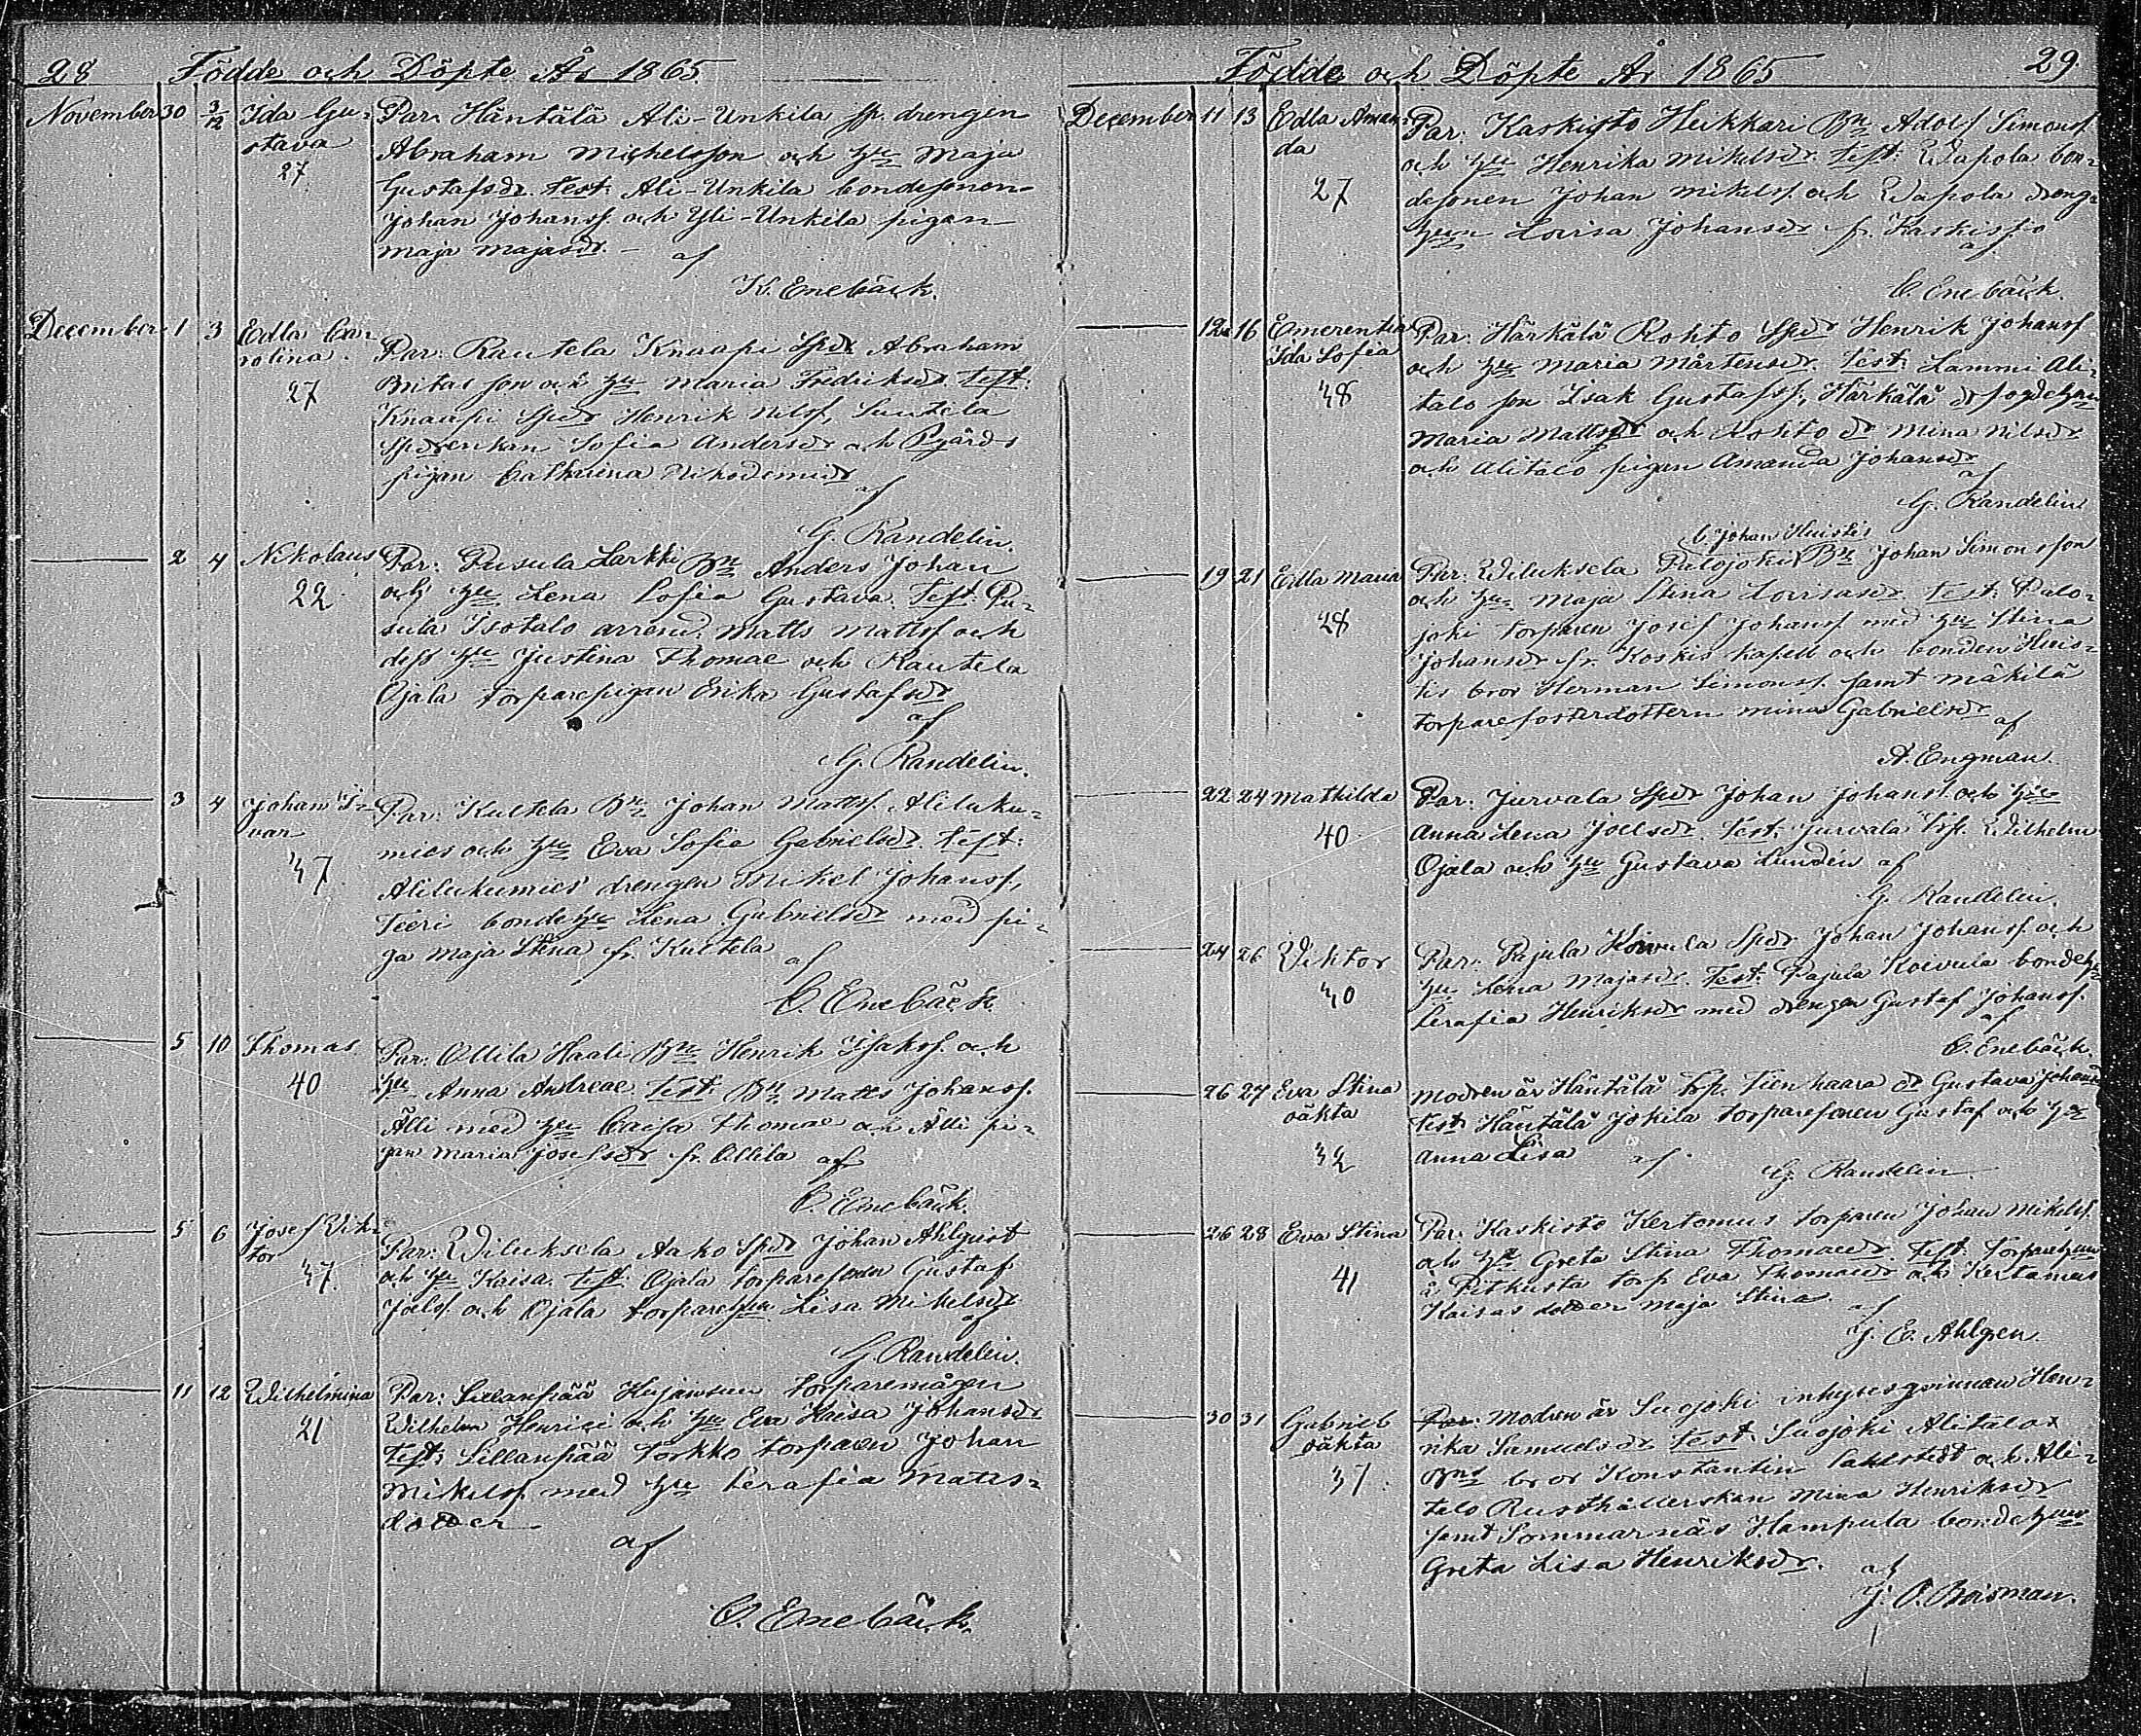 28 Födde och Döpte År 1865.
November 30 3/12 Ida Gu- Par. Häntälä Ali-Unkila sp. drengen
stava Abraham Michelsson och hu Maja
27 Gustafsdr. Test: Ali-Unkila bondesonen
Johan Johanss. och Yli-Unkila pigan
Maja Majasdr. — af
K. Enebäck.
December 1 3 Edla Ca-
rolina. Par: Rautela Knaapi Spdr Abraham
27 Britas son och hu Maria Fredriksdr. Test:
Knaapi Spdr Henrik Nilss,
Sofia Andersdr och Pgårds
pigan Catharina Nikodemidr
af
G. Randelin.
2 4 Nikolaus Par: Pusula Larkki Bn Anders Johan
22 och hu Lena Sofia Gustava. Test: Pu-
sula Isotalo arrend. Matts Mattss och
dess hu Justina Thomae och Rautela
Ojala torparepigan Erika Gustafsdr
af
G. Randelin.
3 4 Johan I- Par: Kultela Bn Johan Mattss. Aliluku-
var mies och hu Eva Sofia Gabrielsdr. Test:
37 Alilukumies drengen Mikel Johanss.,
Teeri bondehu Lena Gabrielsdr med pi-
ga Maja Stina fr. Kultela af
C. Enebäck.
5 10 Thomas. Par: Ollila Haali Bn Henrik Isakss. och
40 hu Anna Andreae. Test: Bn Matts Johanss.
Älli med hu Caisa Thomae och Älli pi-
gan Maria Josefsdr fr. Ollila af
C. Enebäck.
5 6 Josef Vik-
tor Par: Wiluksela Aako Spdr Johan Ahlqvist
37. och hu Kaisa. Test: Ojala torparesonen Gustaf
Joels. och Ojala torparehun Lisa Mikelsdr
af
G. Randelin.
11 12 Wilhelmina Par: Sillanpää Kujansuu torparemågen
21 Wilhelm Henrici och hu Eva Kaisa Johansdr
Test: Sillanpää Torkko torparen Johan
Mikelss. med hu Serafia Matts-
dotter
af
C. Enebäck.
Födde och Döpte År 1865 29.
December 11 13 Edla Aman- Par: Kaskisto Heikkari Bn Adolf Simonss.
da och hu Henrika Mikelsdr. Test: Wapola bon-
27 desonen Johan Mikelss. och Wapola dreng-
hun Lovisa Johansdr fr. Kaskisto
af
C. Enebäck.
12 16 Emerentia Par. Härkälä Rohto Spdr Henrik Johanss
Ida Sofia och hu Maria Mårtensdr. Test: Lammi Ali-
38 talo son Isak Gustafss., Härkälä
Maria Mattsdr och Rohto dr Mina Nilsdr
och Alitalo pigan Amanda Johansdr
af
G. Randelin
19 21 Edla Maria Par. Wiluksela Palojoki Bn Johan Simonsson
och hu Maja Stina Lovisasdr. Test: Palo-
28 joki torparen Josef Johanss. med hu Stina
Johansdr fr. Koskis kapell och bonden Huis-
tis bror Herman Simonss. samt Mäkilä
torpare fosterdottern Mina Gabrielsdr af
A. Engman.
22 24 Mathilda Par: Jurvala Spdr Johan Johanss. och hu
40 Anna Lena Joelsdr. Test: Jurvala Wilhelm
Ojala och hu Gustava Lundén af
G. Randelin.
24 26 Viktor Par: Pajula Koivula Spdr Johan Johanss. och
30 hu Lena Majasdr. Test: Pajula Koivula bondehu
Serafia Henriksdr med drengen Gustaf Johanss.
af
C. Enebäck.
26 27 Eva Stina Modren är Häntälä torp. Tienhaara dr Gustava Johansdr
oäkta Test: Häntälä Jokila torparesonen Gustaf och hu
32 Anna Lisa af G. Randelin
26 28 Eva Stina Par. Kaskisto Kertomus torparen Johan Mikelss.
41 och hu Greta Stina Thomaedr. Test: torparehun
å Pitkusta torp Eva Thomaedr och Kertomus
Kaisas dotter Maja Stina. af
J. E. Ahlgren.
30 31 Gabriel Par: Modren är Suojoki inhysesqvinnan Hen-
oäkta rika Samuelsdr. Test: Suojoki Alitalo
37 Bns bror Konstantin och Ali-
talo Rusthållerskan Mina Henriksdr
samt Sommarnäs Hampula bondehun
Greta Lisa Henriksdr. af